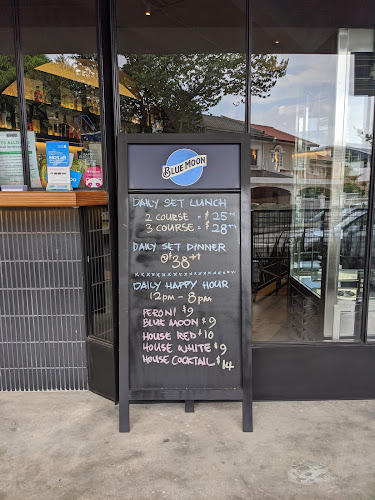 BLUE MOON
DAILY SET LUNCH
2 COURSE = $25++
3 COURSE = $28++
DAILY SET DINNER
@$38++
xxxxxxxxxxxxxxxx
DAILY HAPPY HOUR
12pm - 8pm
PERONI $9
BLUE MOON $9
HOUSE RED $10
HOUSE WHITE $9
HOUSE COCKTAIL $14